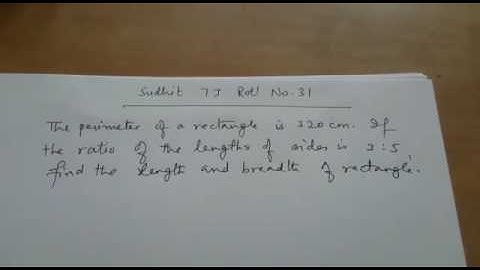 Sudhit 7J Roll No. 31
The perimeter of a rectangle is 320 cm. If
the ratio of the lengths of sides is 3:5
find the length and breadth of rectangle.